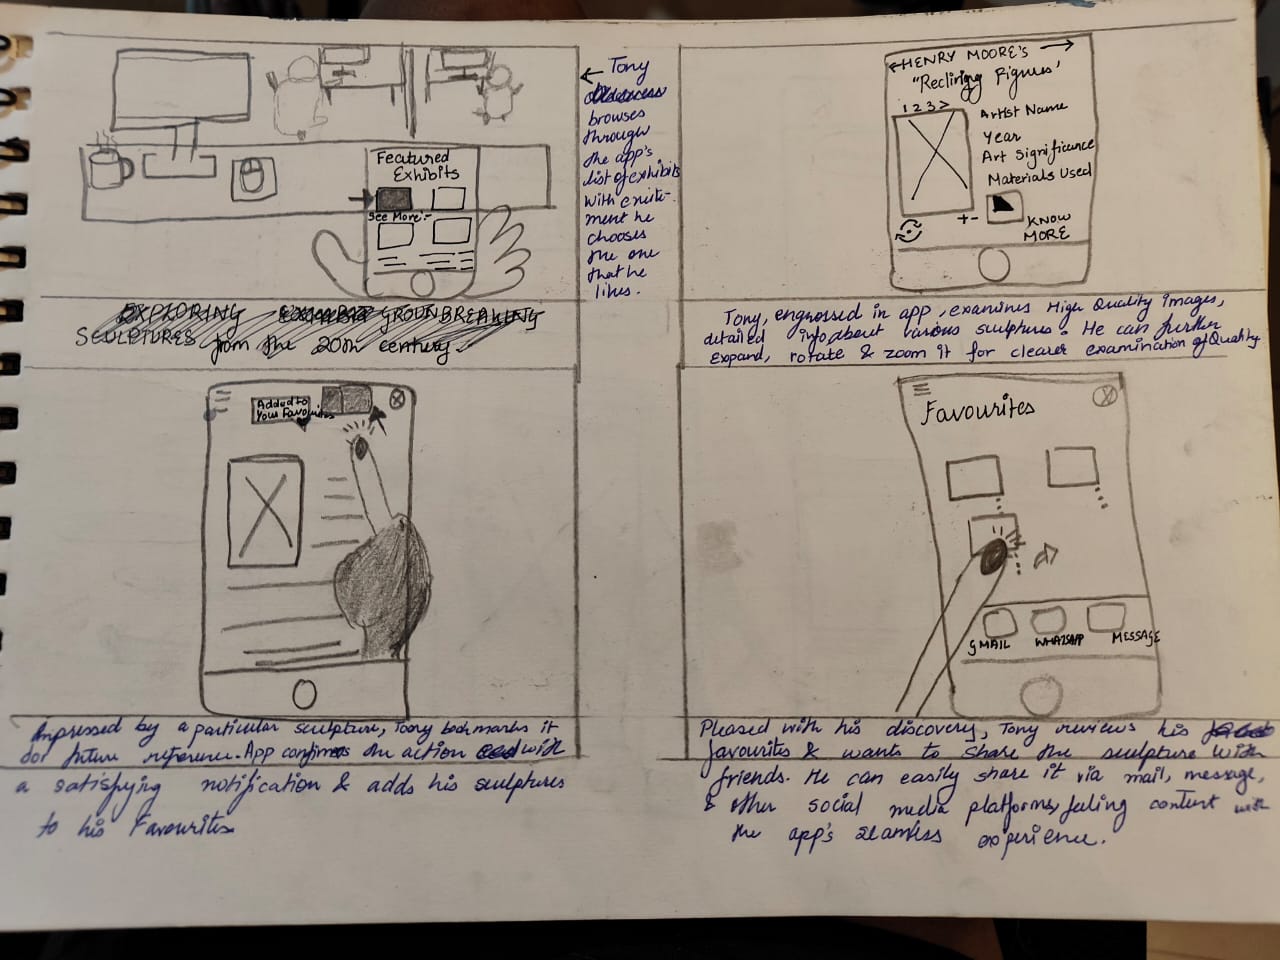 Featured
Exhibits
See More:-
EXPLORING GROUNBREAKING
SCULPTURES from the 20th century.
← Tony
browses
through
the app's
list of exhibits
with excite-
ment he
chooses
the one
that he
likes.
←HENRY MOORE'S →
"Reclining Figures'
1 2 3 >
Artist Name
Year
Art Significance
Materials Used
+-
KNOW
MORE
Tony, engrossed in app, examines High Quality images,
detailed info about various sculptures. He can further
expand, rotate & zoom it for clearer examination of Quality
Added to
Your Favourites
Impressed by a particular sculpture, Tony bookmarks it
for future reference. App confirms the action with
a satisfying notification & adds his sculptures
to his Favourites
Favourites
GMAIL WHATSAPP MESSAGE
Pleased with his discovery, Tony reviews his
favourites & wants to share the sculpture with
friends. He can easily share it via mail, message,
& other social media platforms, feeling content with
the app's seamless experience.